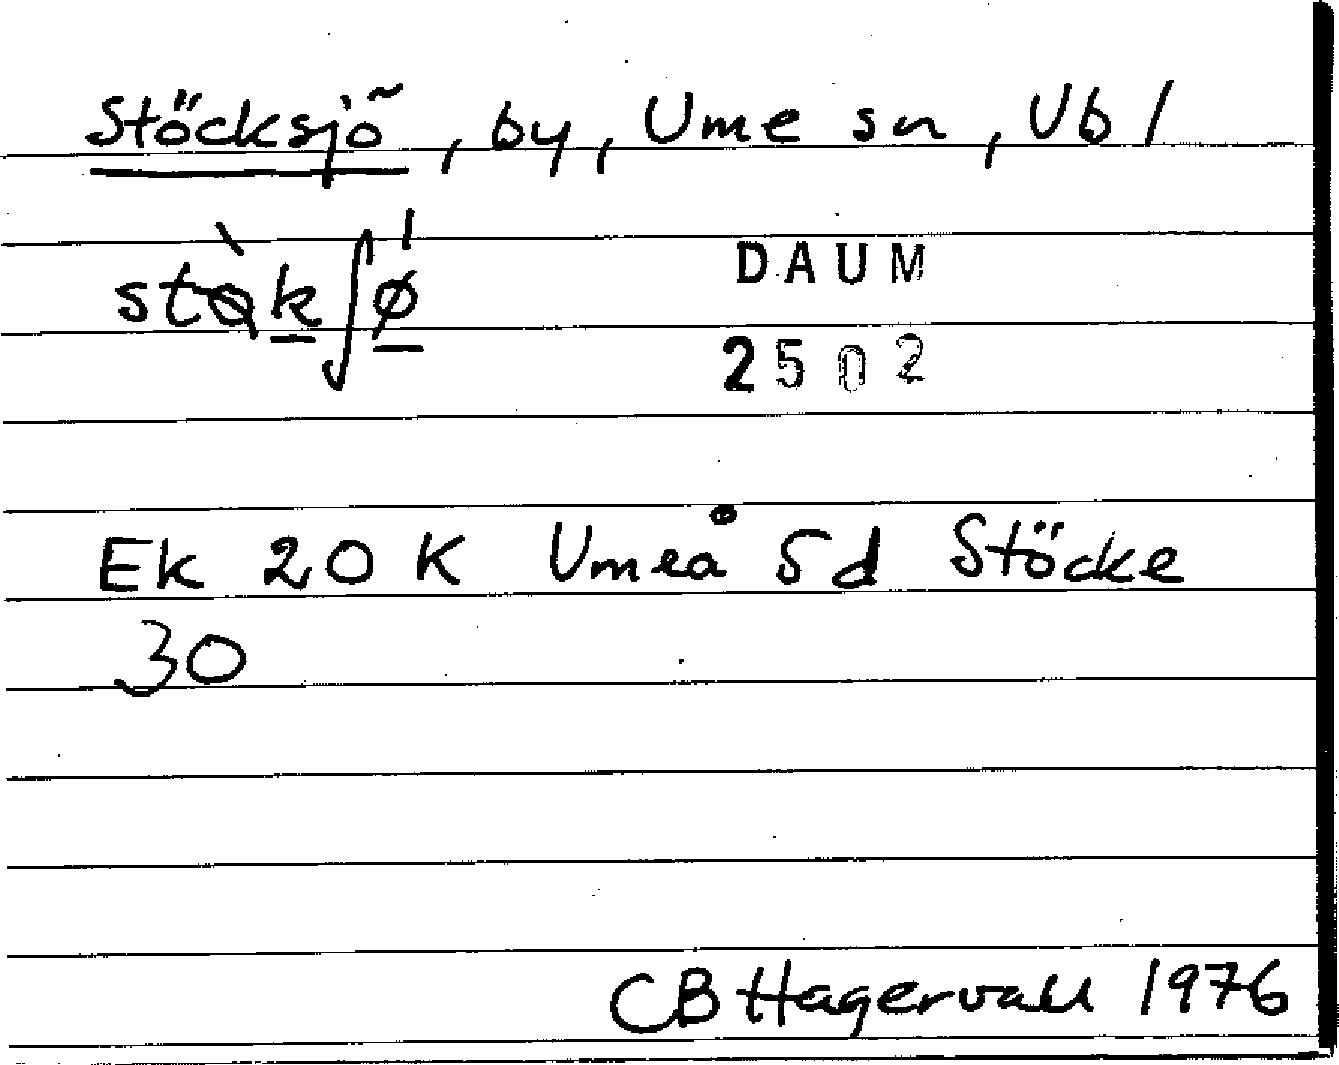 Stöcksjö, by, Ume sn, Vb /
DAUM
2502
Ek 20 K Umeå 5d Stöcke
30
CB Hagervall 1976